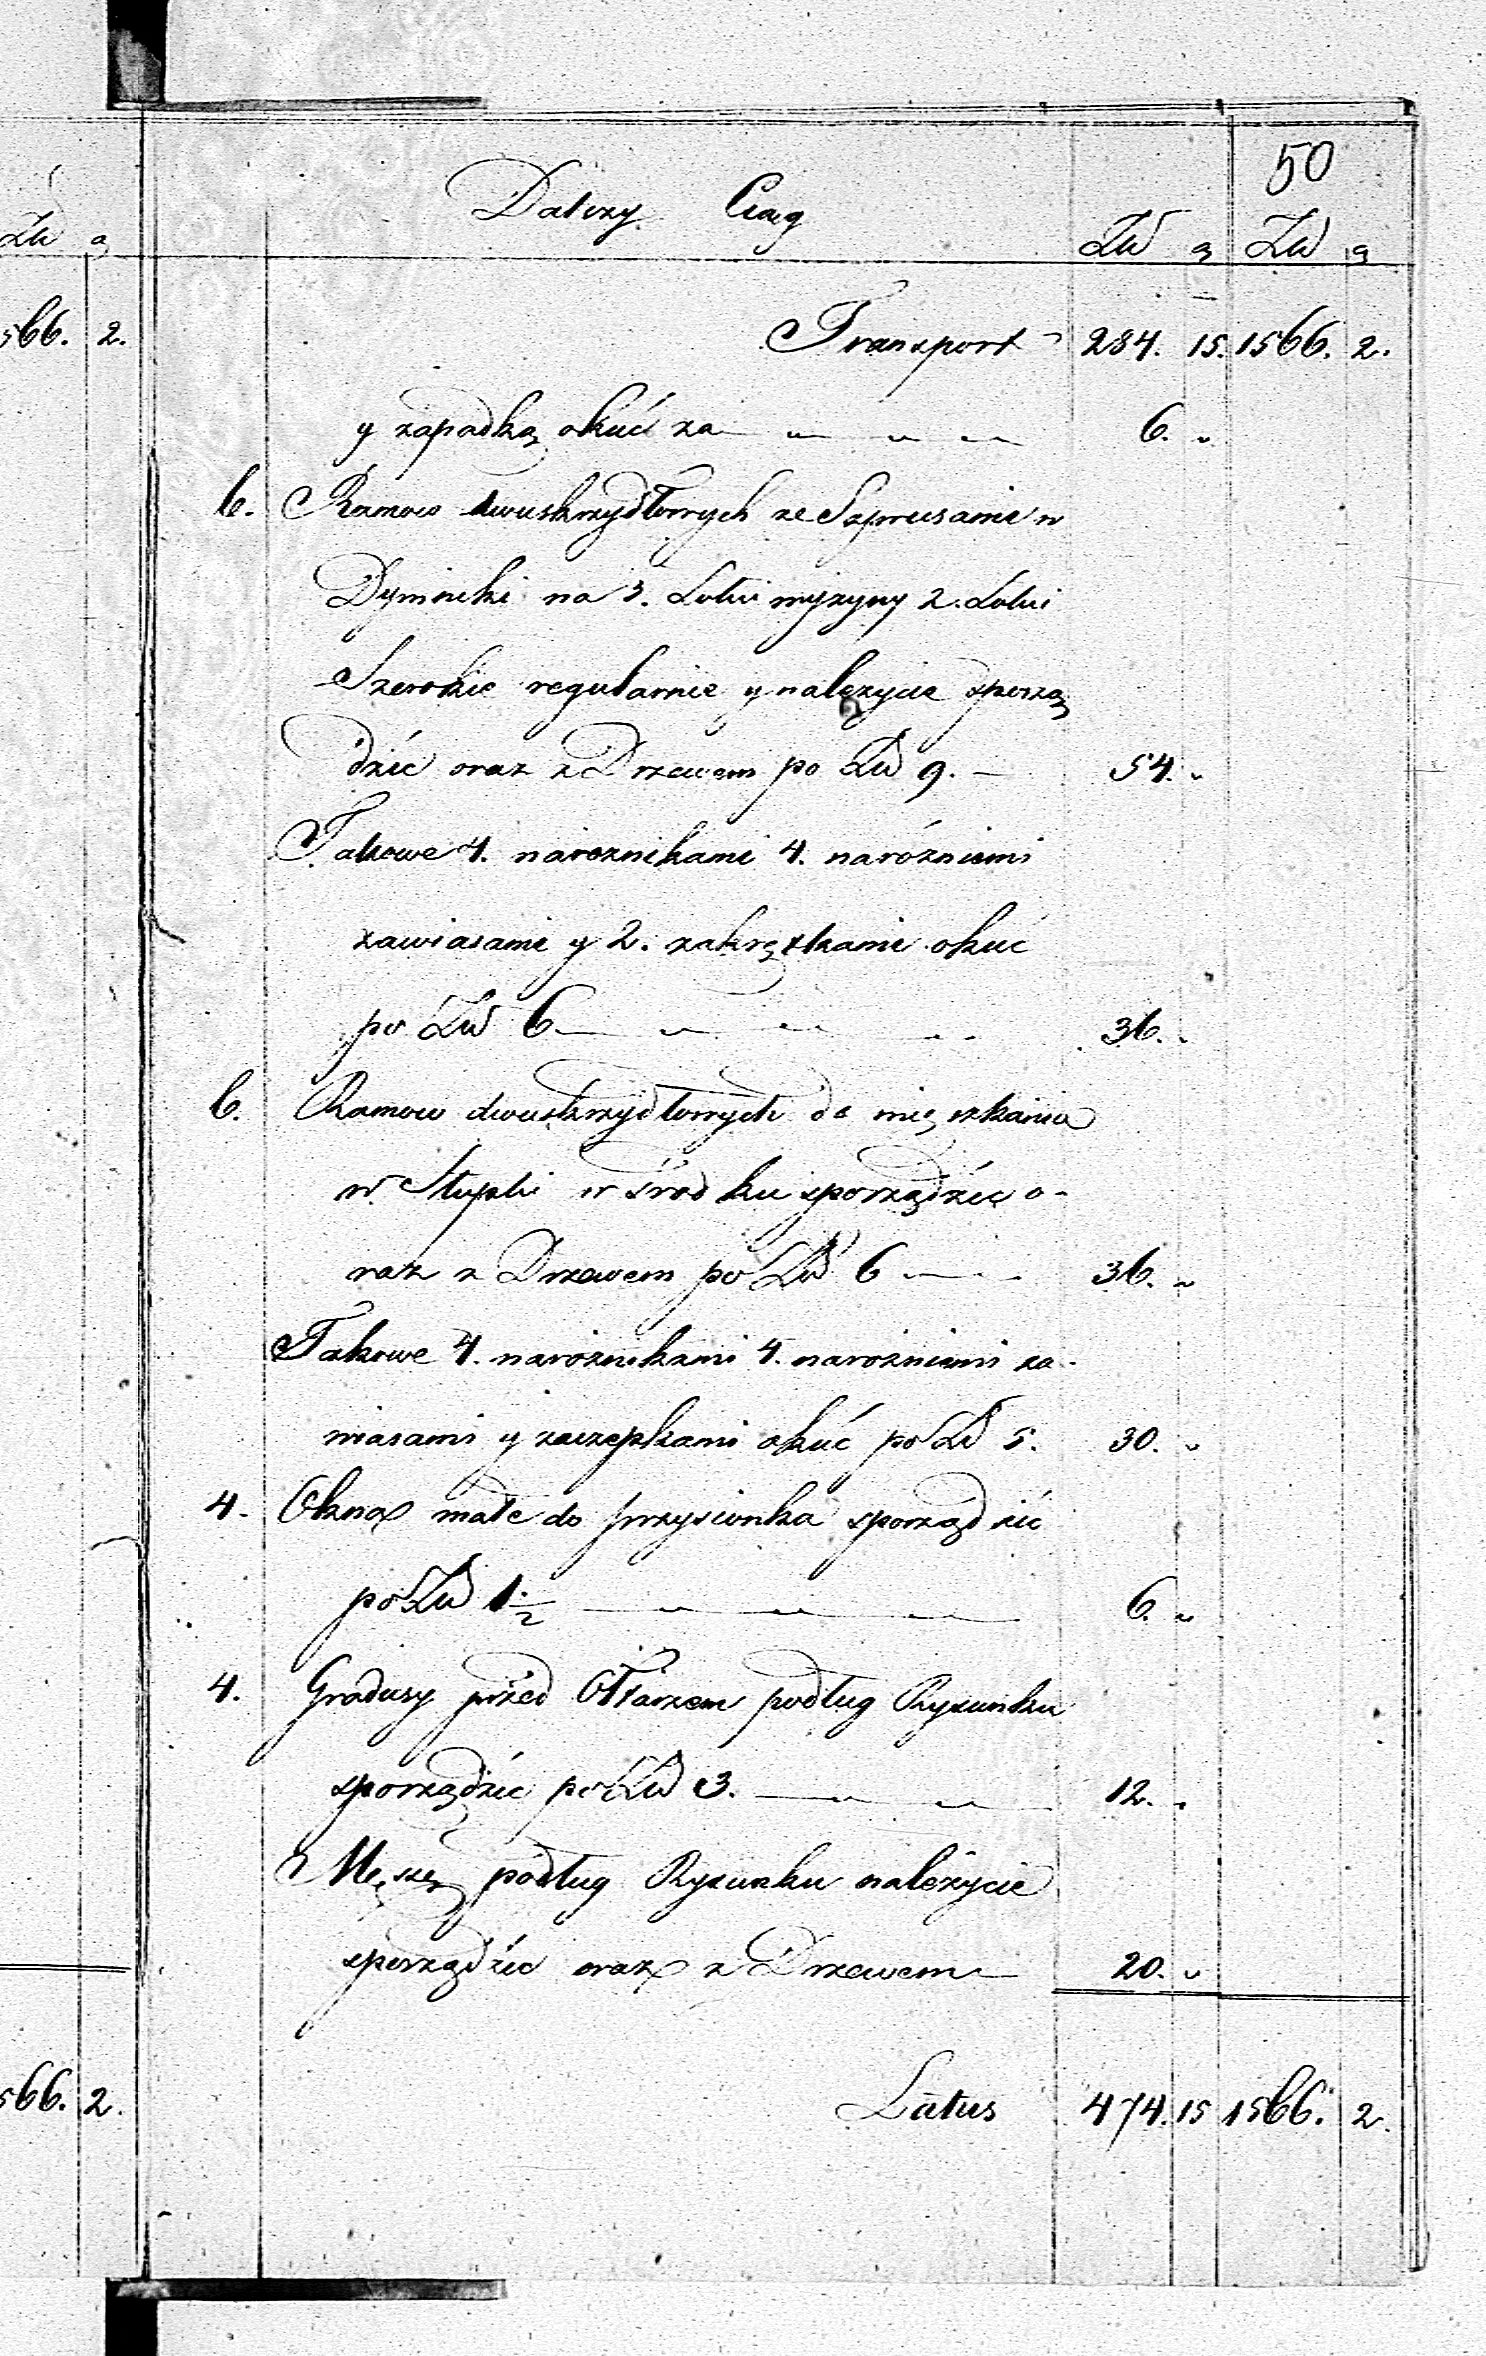 50
Dalszy Ciąg
Zł g Zł g
Zł g
Transport 284. 15. 1566. 2.
566. 2.
y zapadką okuć za 6. „
6. Ramow dwuskrzydłowych ze Szprusami w
Dyminki na 3. Łokci wyzyny 2. Łokci
Szerokie regularnie y należycie sporzą
dzić oraz z Drzewem po Zł 9. — 54. „
Takowe 4. narożnikami 4. narożniemi
zawiasami y 2. zakrętkami okuć
po Zł 6 36. „
6. Ramow dwuskrzydłowych do mięszkania
w Słupki w środku sporządzić o-
raz z Drzewem po Zł 6 36. „
Takowe 4. narożnikami 4. narożniemi za-
wiasami y zaczepkami okuć po Zł 5. 30. „
4. Okna małe do przysionka sporządzić
po Zł 1 1/2 6. „
4. Gradusy przed Ołtarzem podług Rysunku
sporządzić po Zł 3. 12. „
Męsę podług Rysunku należycie
sporządzić oraz z Drzewem 20. „
Latus 474. 15 1566. 2.
566. 2.